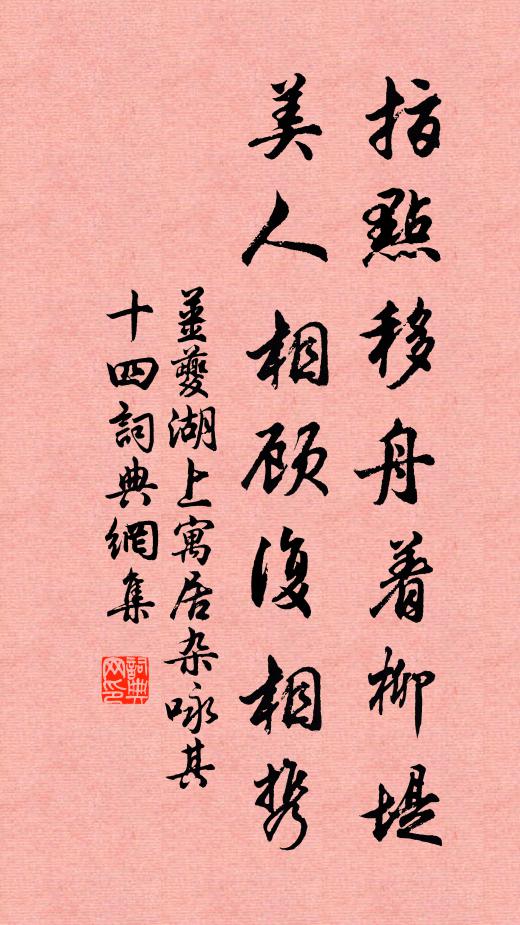 指點移舟着柳堤
美人相顾復相携
姜夔湖上寓居杂咏其
十四詞典網集
詞典
网印